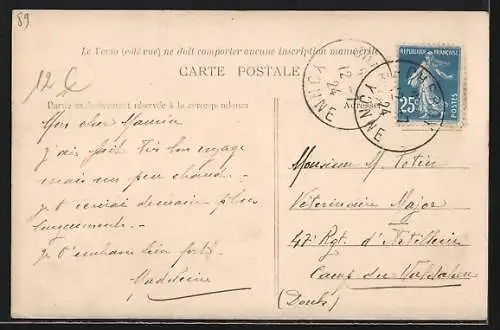 89
Le Verso (côté vue) ne doit comporter aucune inscription manuscrite
CARTE POSTALE
12 €
Partie exclusivement réservée à la correspondance
Adresse
YONNE
24
YONNE
24
REPUBLIQUE FRANÇAISE
25c
POSTES
Mon cher Maurice
J'ai fait très bon voyage
mais un peu chaud.
Je t'écrirai demain plus
longuement.
Je t'embrasse bien fort.
Madeleine
Monsieur M. Totin
Vétérinaire Major
47e Rgt. d'Artillerie
Camp du Valdahon
(Doubs)